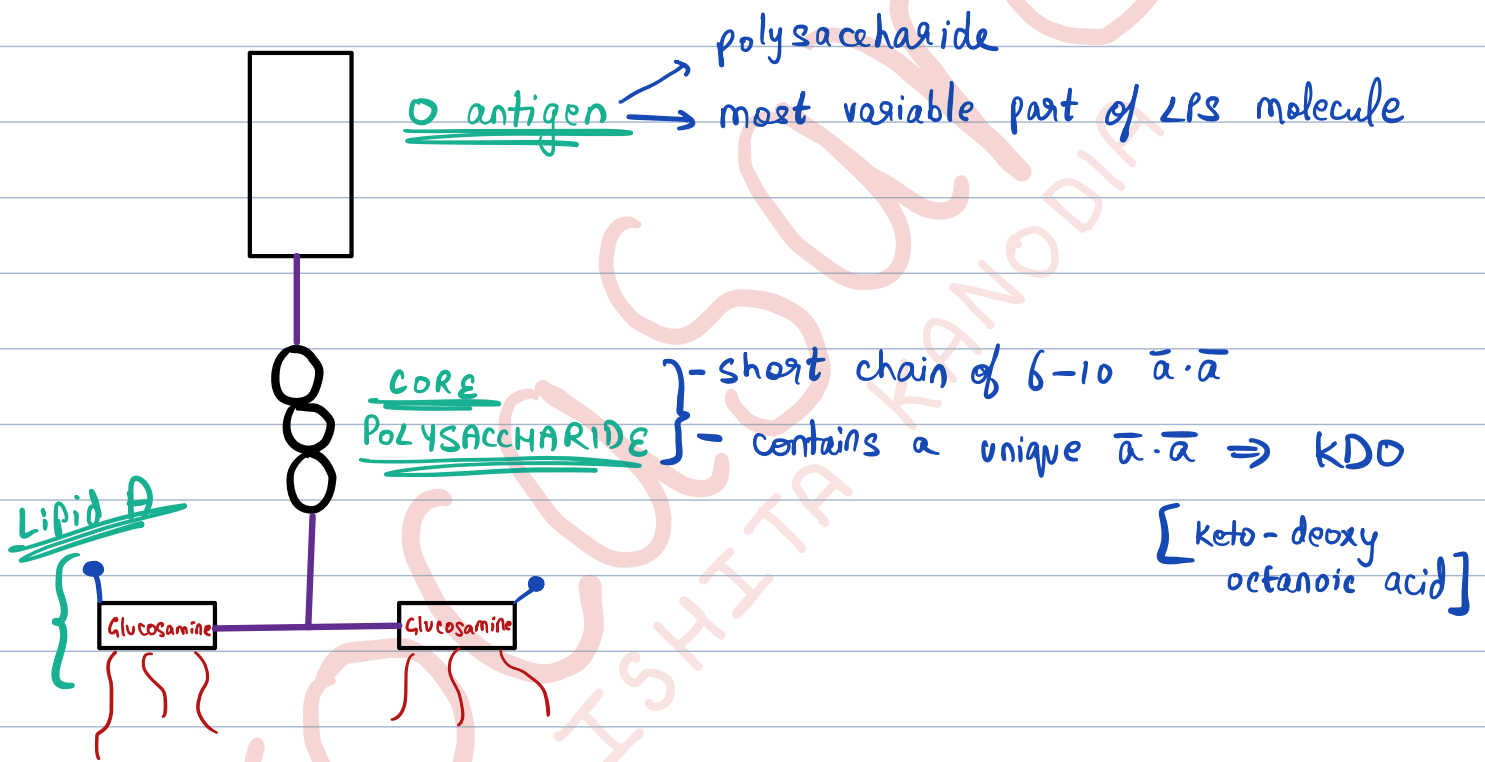 polysaccharide
O antigen → most variable part of LPS molecule
CORE
POLYSACCHARIDE
- short chain of 6-10 ā.ā
- contains a unique ā.ā ⇒ KDO
[keto-deoxy
octanoic acid]
Lipid A
Glucosamine
Glucosamine
ISHITA KANODIA